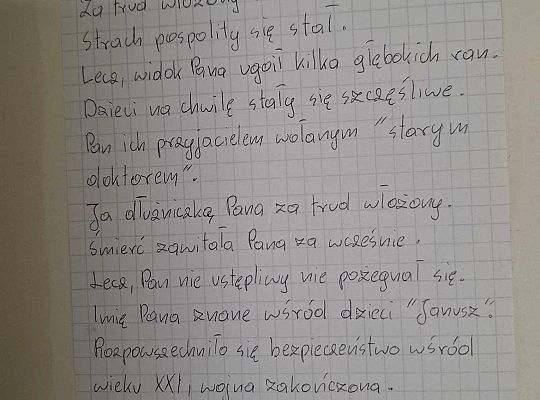 Za trud włożony
Strach pospolity się stał.
Lecz, widok Pana ugoił kilka głębokich ran.
Dzieci na chwilę stały się szczęśliwe.
Pan ich przyjacielem wołanym "starym
doktorem".
Ja dłużniczką Pana za trud włożony.
Śmierć zawitała Pana za wcześnie.
Lecz, Pan nie ustępliwy nie pożegnał się.
Imię Pana znane wśród dzieci "Janusz".
Rozpowszechniło się bezpieczeństwo wśród
wieku XXI, wojna zakończona.